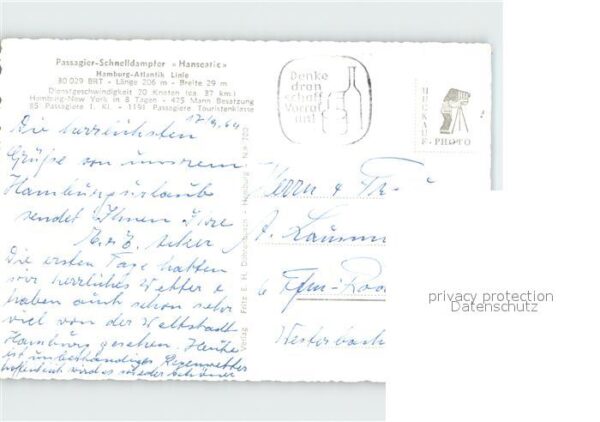 Passagier-Schnelldampfer «Hanseatic»
Hamburg-Atlantik Linie
30 029 BRT - Länge 206 m - Breite 29 m
Dienstgeschwindigkeit 20 Knoten (ca. 37 km.)
Hamburg-New York in 8 Tagen - 425 Mann Besatzung
85 Passagiere I. Kl. - 1191 Passagiere Touristenklasse
Die herzlichsten
Grüße von unserem
Hamburgurlaub
sendet Ihnen Ihre
Acker
Die ersten Tage hatten
wir herrliches Wetter &
haben auch schon sehr
viel von der Weltstadt
Hamburg gesehen. Heute
ist unbeständiges Regenwetter
hoffentlich wird es wieder schöner
Verlag Fritz E. H. Hamburg
Denke
dran
schaff
Vorrat
an!
PHOTO
Herrn & Fr
A.
Ffm-
Westerbach
privacy protection
Datenschutz